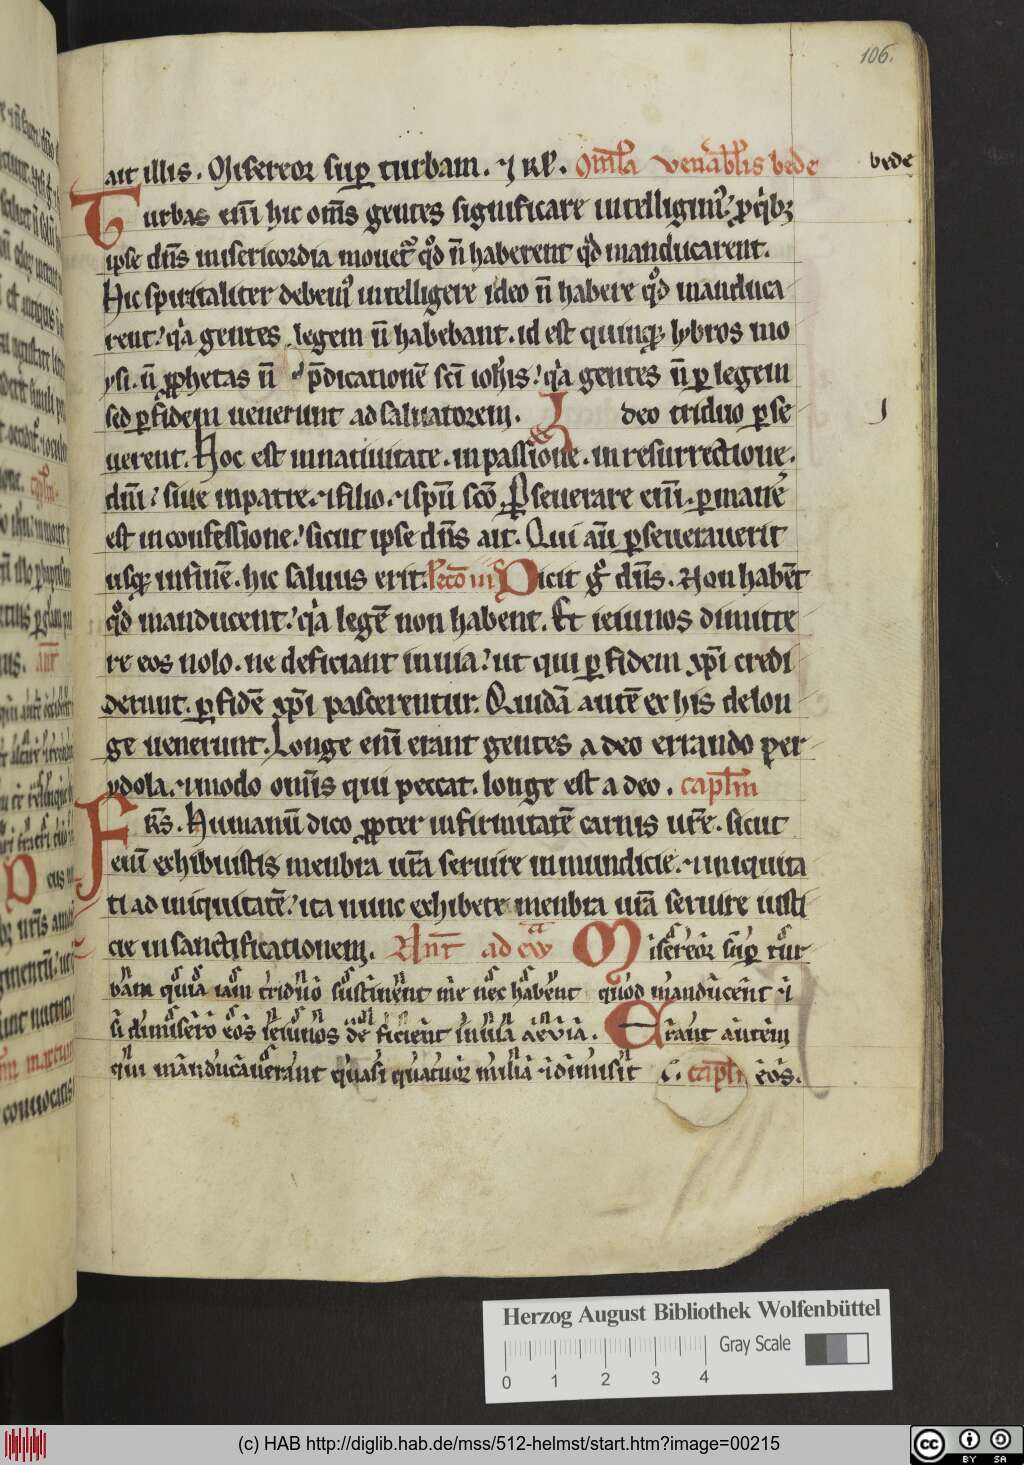 106.
ait illis. Misereor suꝑ turbam. ⁊ Rł. Om̄ła ven̄abłis bede
bede
Turbas em̄ hic om̄s gentes significare intelligim᷒. ꝓ qͥbꝫ
ipse dn̄s misericordia mouet᷑ qͦd n̄ haberent qͦd manducarent.
Hic spiritaliter debem᷒ intelligere ideo n̄ habere qͦd manduca
rent. qͥa gentes legem n̄ habebant. id est quinqꝫ lybros mo
ysi. n̄ ꝓphetas n̄ p̄dicationē sc̄i ioh̄is. qͥa gentes n̄ ꝑ legem
sed ꝑ fidem uenerunt ad saluatorem. Ideo triduo ꝑse
uerent. Hoc est in natiuitate. in passione. in resurrectione.
dn̄i. siue in patre. ⁊ filio. ⁊ spū sc̄o. Ꝑseuerare em̄. ꝑmanē
est in confessione. sicut ipse dn̄s ait. Qui aū ꝑseuerauerit
usqꝫ in finē. hic saluus erit. Lectō iii Dicit gͦ dn̄s. Non habēt
qͦd manducent. qͥa legē non habent. Et ieiunos dimitte
re eos nolo. ne deficiant in uia. ut qui ꝑ fidem xp̄i credi
derunt. ꝑ fidē xp̄i pascerentur. Quidā autē ex his de lon
ge uenerunt. Longe em̄ erant gentes a deo errando per
ydola. ⁊ modo om̄is qui peccat. longe est a deo. capłm
Frs̄. Humanū dico ꝓpter infirmitatē carnis ur̄e. sicut
em̄ exhibuistis menbra ur̄a seruire inmundicie. ⁊ iniquita
ti ad iniquitatē. ita nunc exhibete menbra ur̄a seruire iusti
cie in sanctificationem. Ant̄ ad ew̄ Misereor suꝑ tur
bam quia iam triduo sustinent me nec habent quod manducent ⁊
si dimisero eos ieiunos deficient in uia aeuia. Erant autem
qui manducauerant quasi quatuor milia ⁊ dimisit capłm eos.
Herzog August Bibliothek Wolfenbüttel
Gray Scale
0 1 2 3 4
(c) HAB http://diglib.hab.de/mss/512-helmst/start.htm?image=00215
cc BY SA